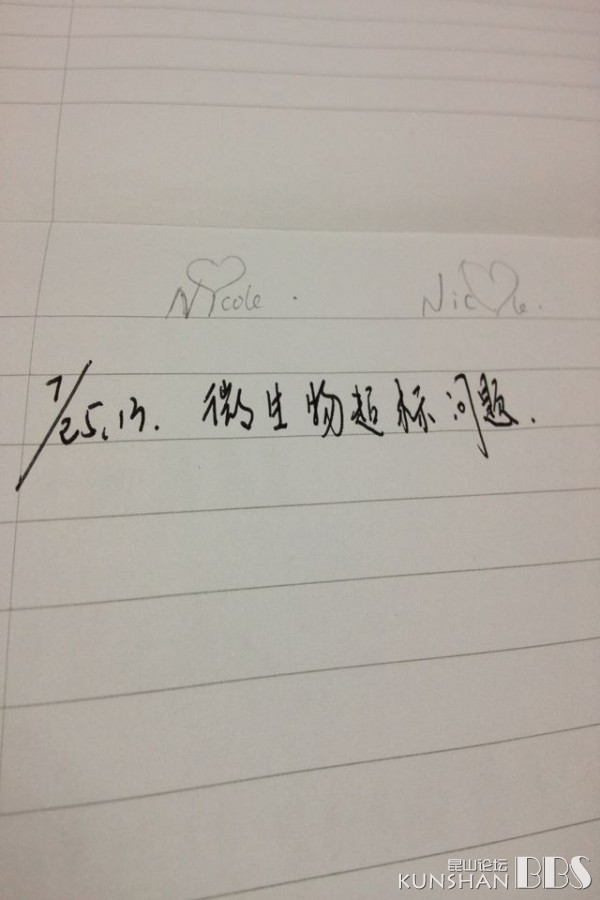 Nicole. Nicole.
7/25,13. 微生物超标问题.
昆山论坛
KUNSHAN BBS